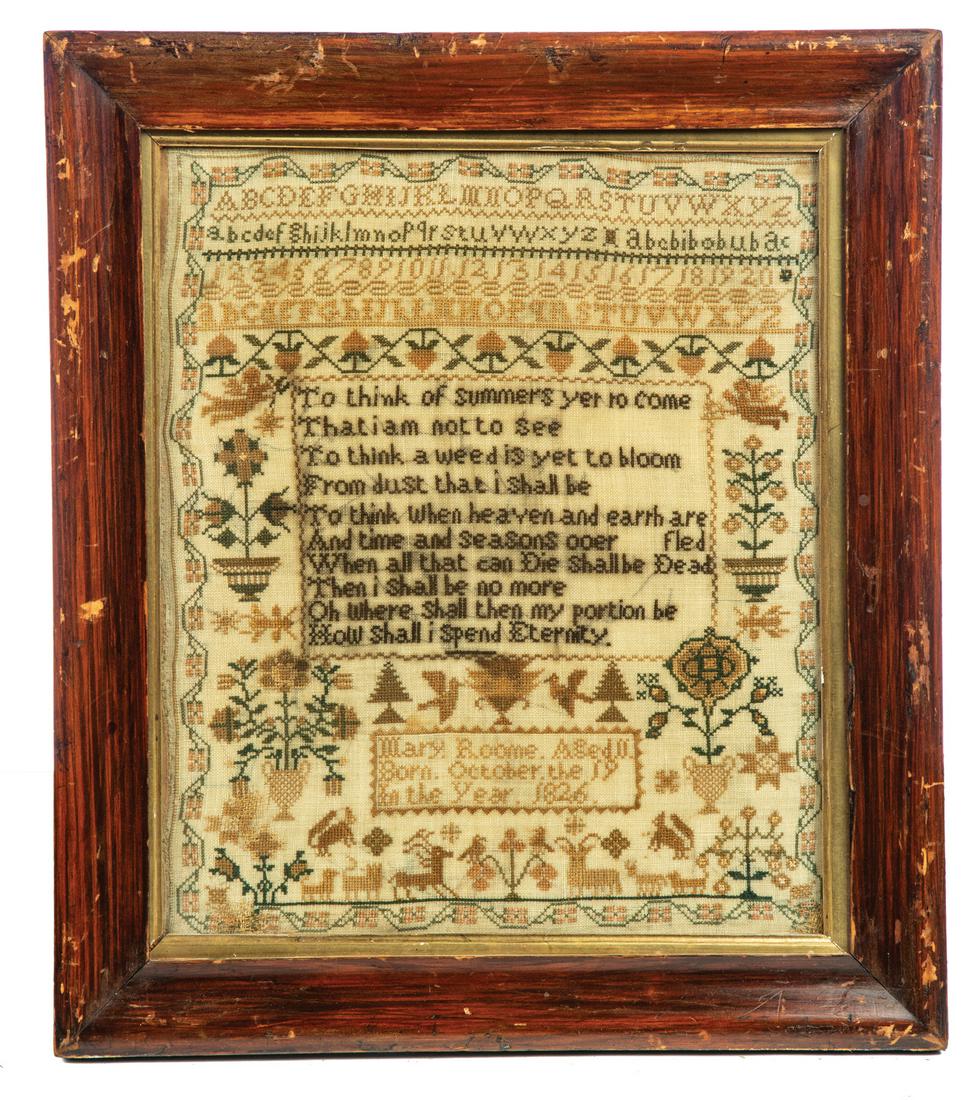 ABCDEFGHIJKLMNOPQRSTUVWXYZ
abcdefghijklmnopqrstuvwxyz abcbibobubac
1 2 3 4 5 6 7 8 9 10 11 12 13 14 15 16 17 18 19 20
TUVWXYZ
To think of summers yer ro come
That i am not to see
To think a weed is yet to bloom
From dust that i shall be
To think when heaven and earrh are
And time and seasons ooer fled
When all that can Die shall be Dead
Then i shall be no more
Oh where shall then my portion be
How shall i spend Eternity.
Mary Roome. Aged 11
Born. October. the 19
In the Year. 1826.